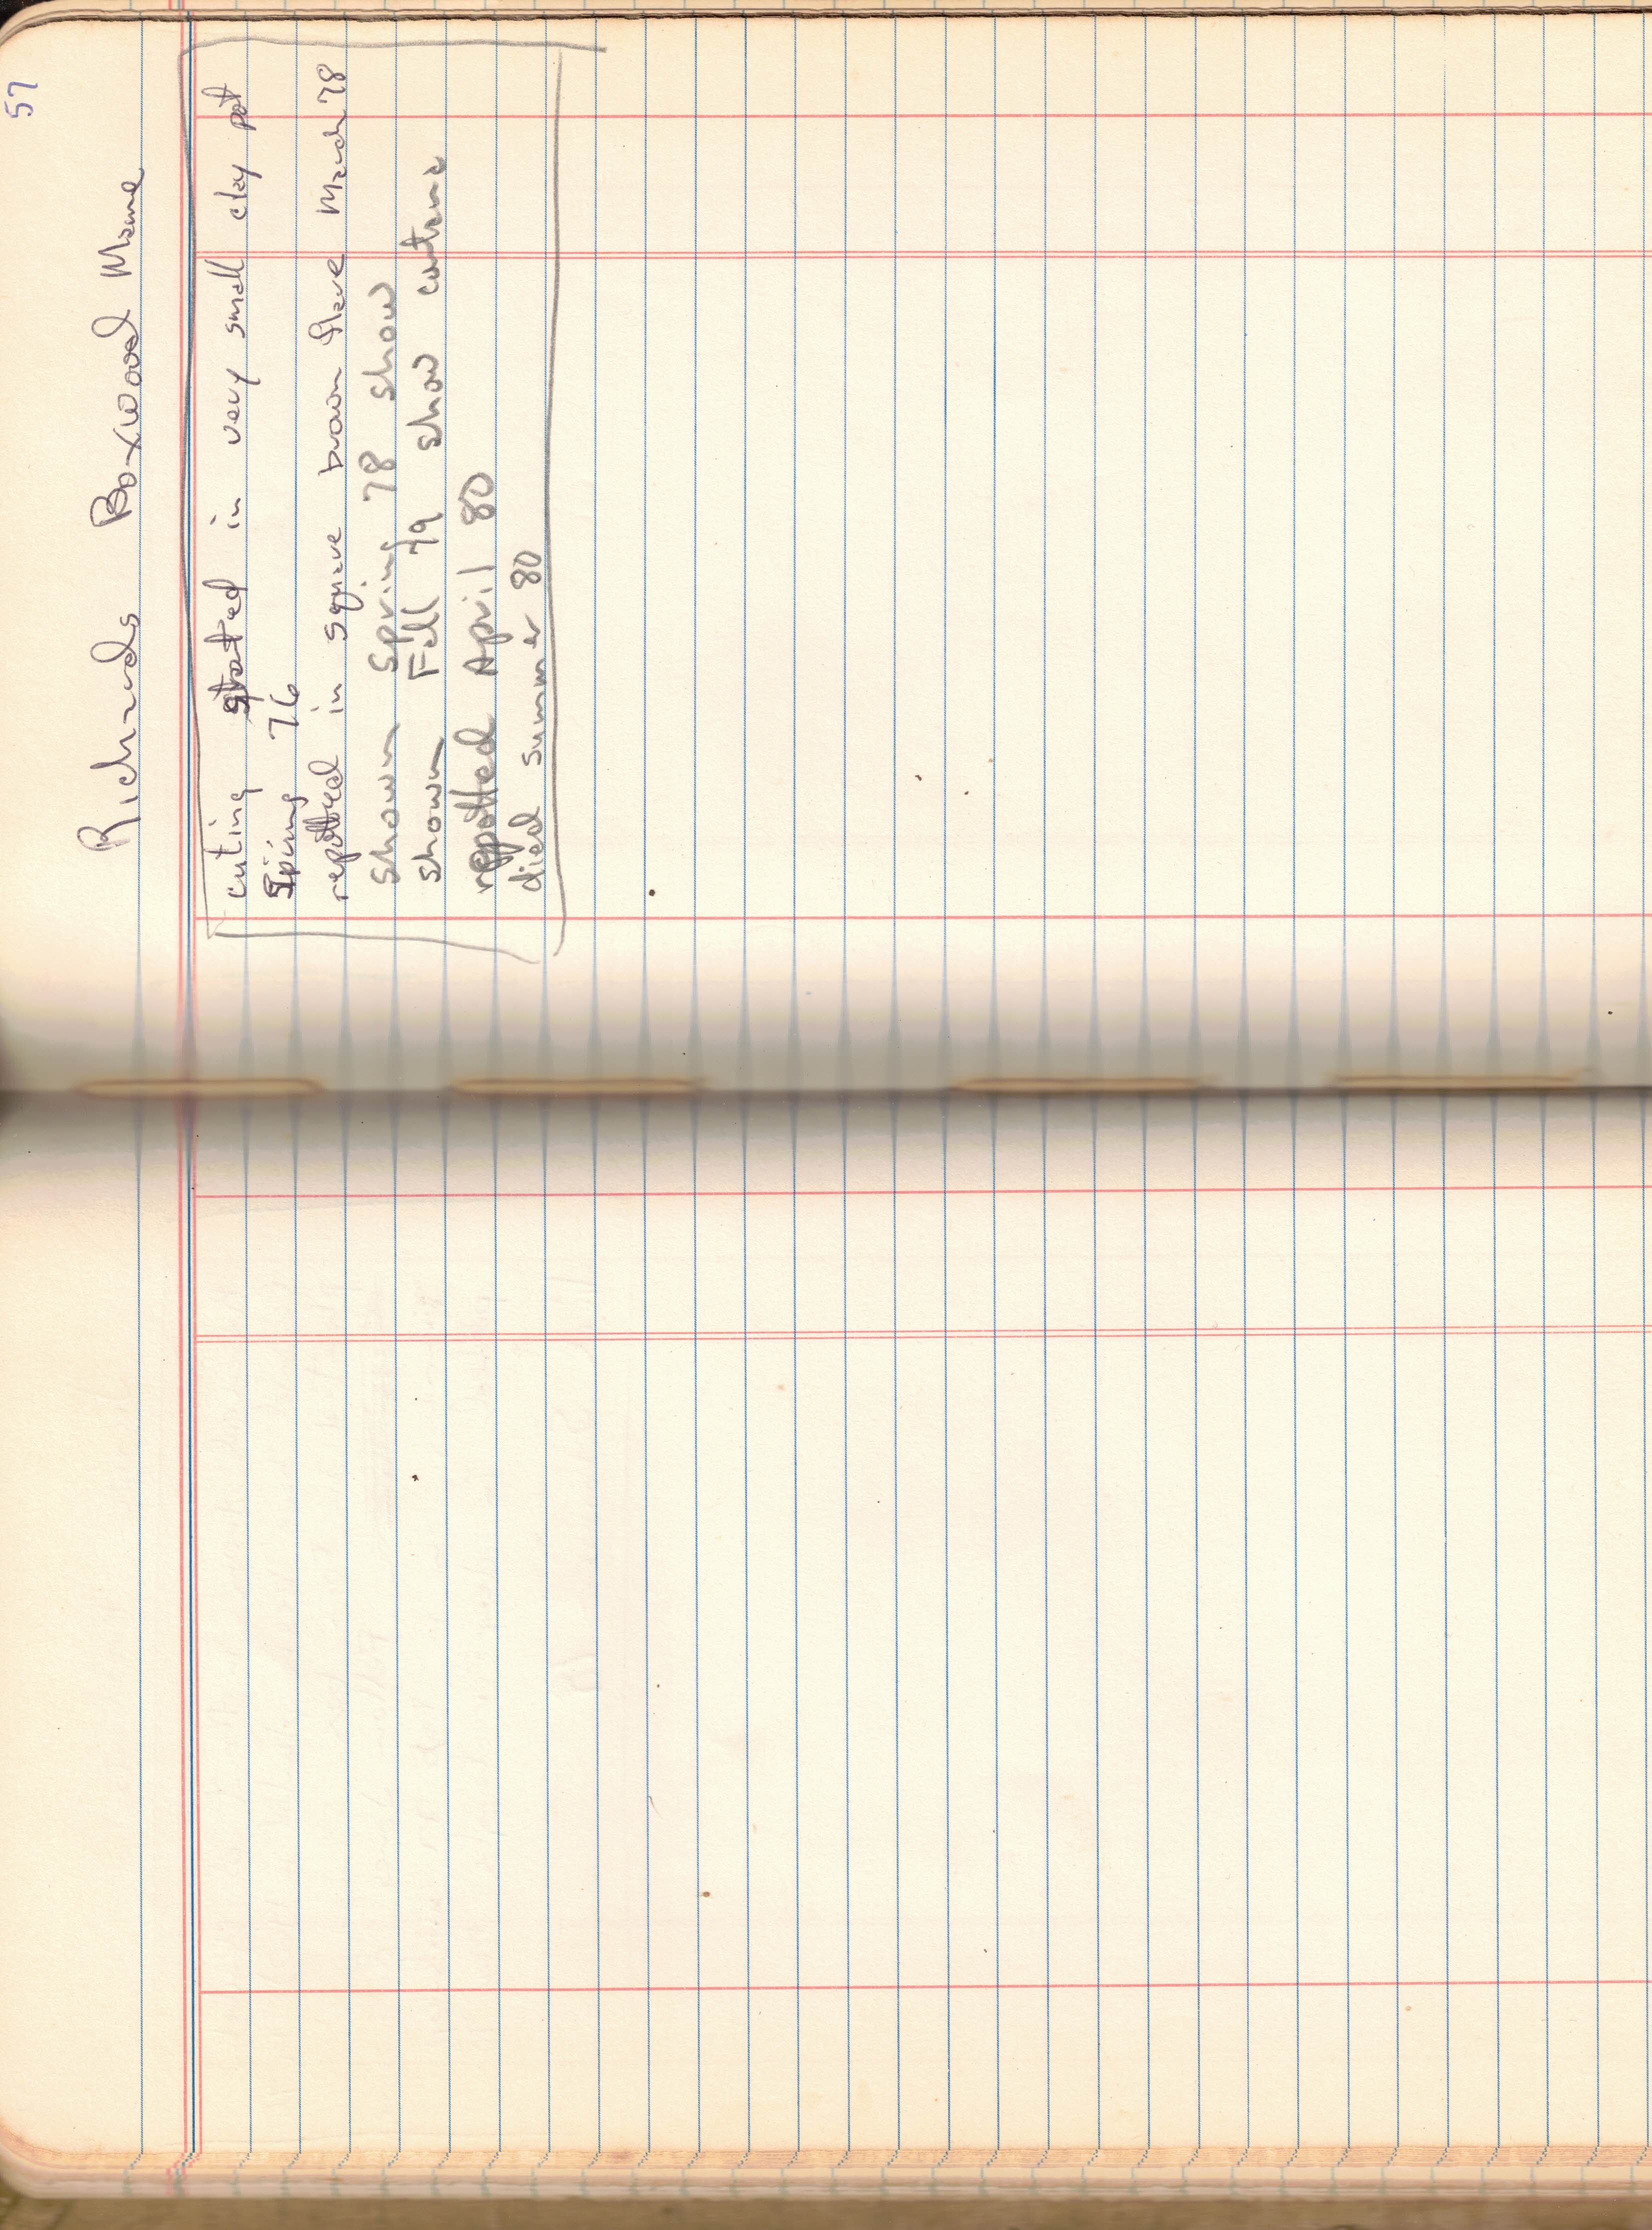 57
Richards Boxwood Mame
cuting started in very small clay pot
Spring 76
repotted in square brown flare March 78
shown Spring 78 show
shown Fall 79 show
repotted April 80
died summer 80